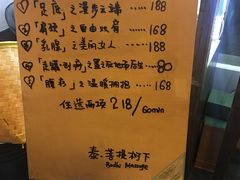 「足底」之漫步云端 ...... 188
「肩颈」之自由双肩 ...... 168
「乳腺」之美丽女人 ...... 188
「之 80
「腹疗」之温暖拥抱 ...... 168
任选两项 218/60min
泰·菩提树下
Bodhi Massage